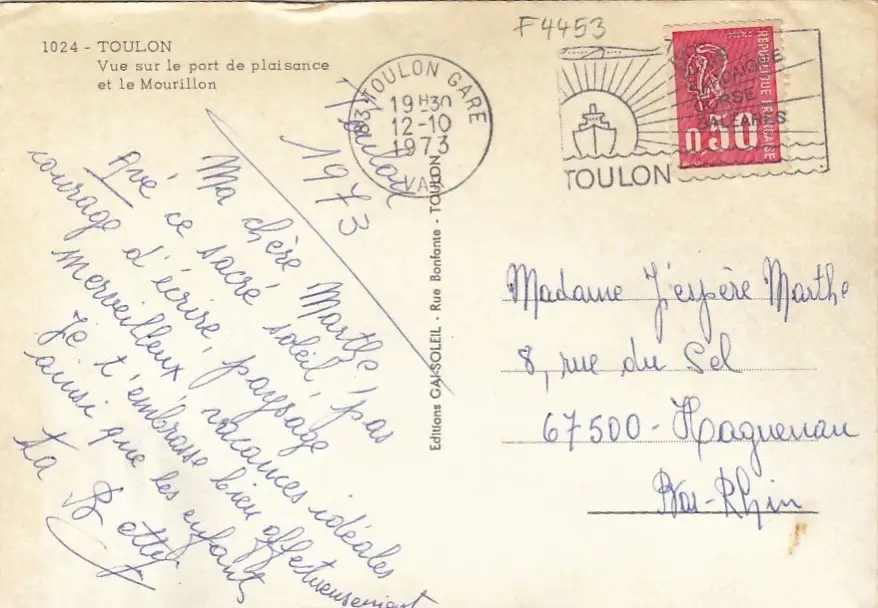 F4453
1024 - TOULON
Vue sur le port de plaisance
et le Mourillon
83 TOULON GARE
19H30
12-10
1973
VAR
TOULON
CORSE
BALEARES
REPUBLIQUE FRANCAISE
0,50
Toulon
1973
Ma chère Marthe,
Avé ce sacré soleil, pas
courage d'écrire, paysage
merveilleux, vacances idéales
Je t'embrasse bien affectueusement
ainsi que les enfants
Ta Betty
Editions GAI-SOLEIL - Rue Bonfante - TOULON
Madame J'espère Marthe
8, rue du Sel
67500 - Haguenau
Bas-Rhin